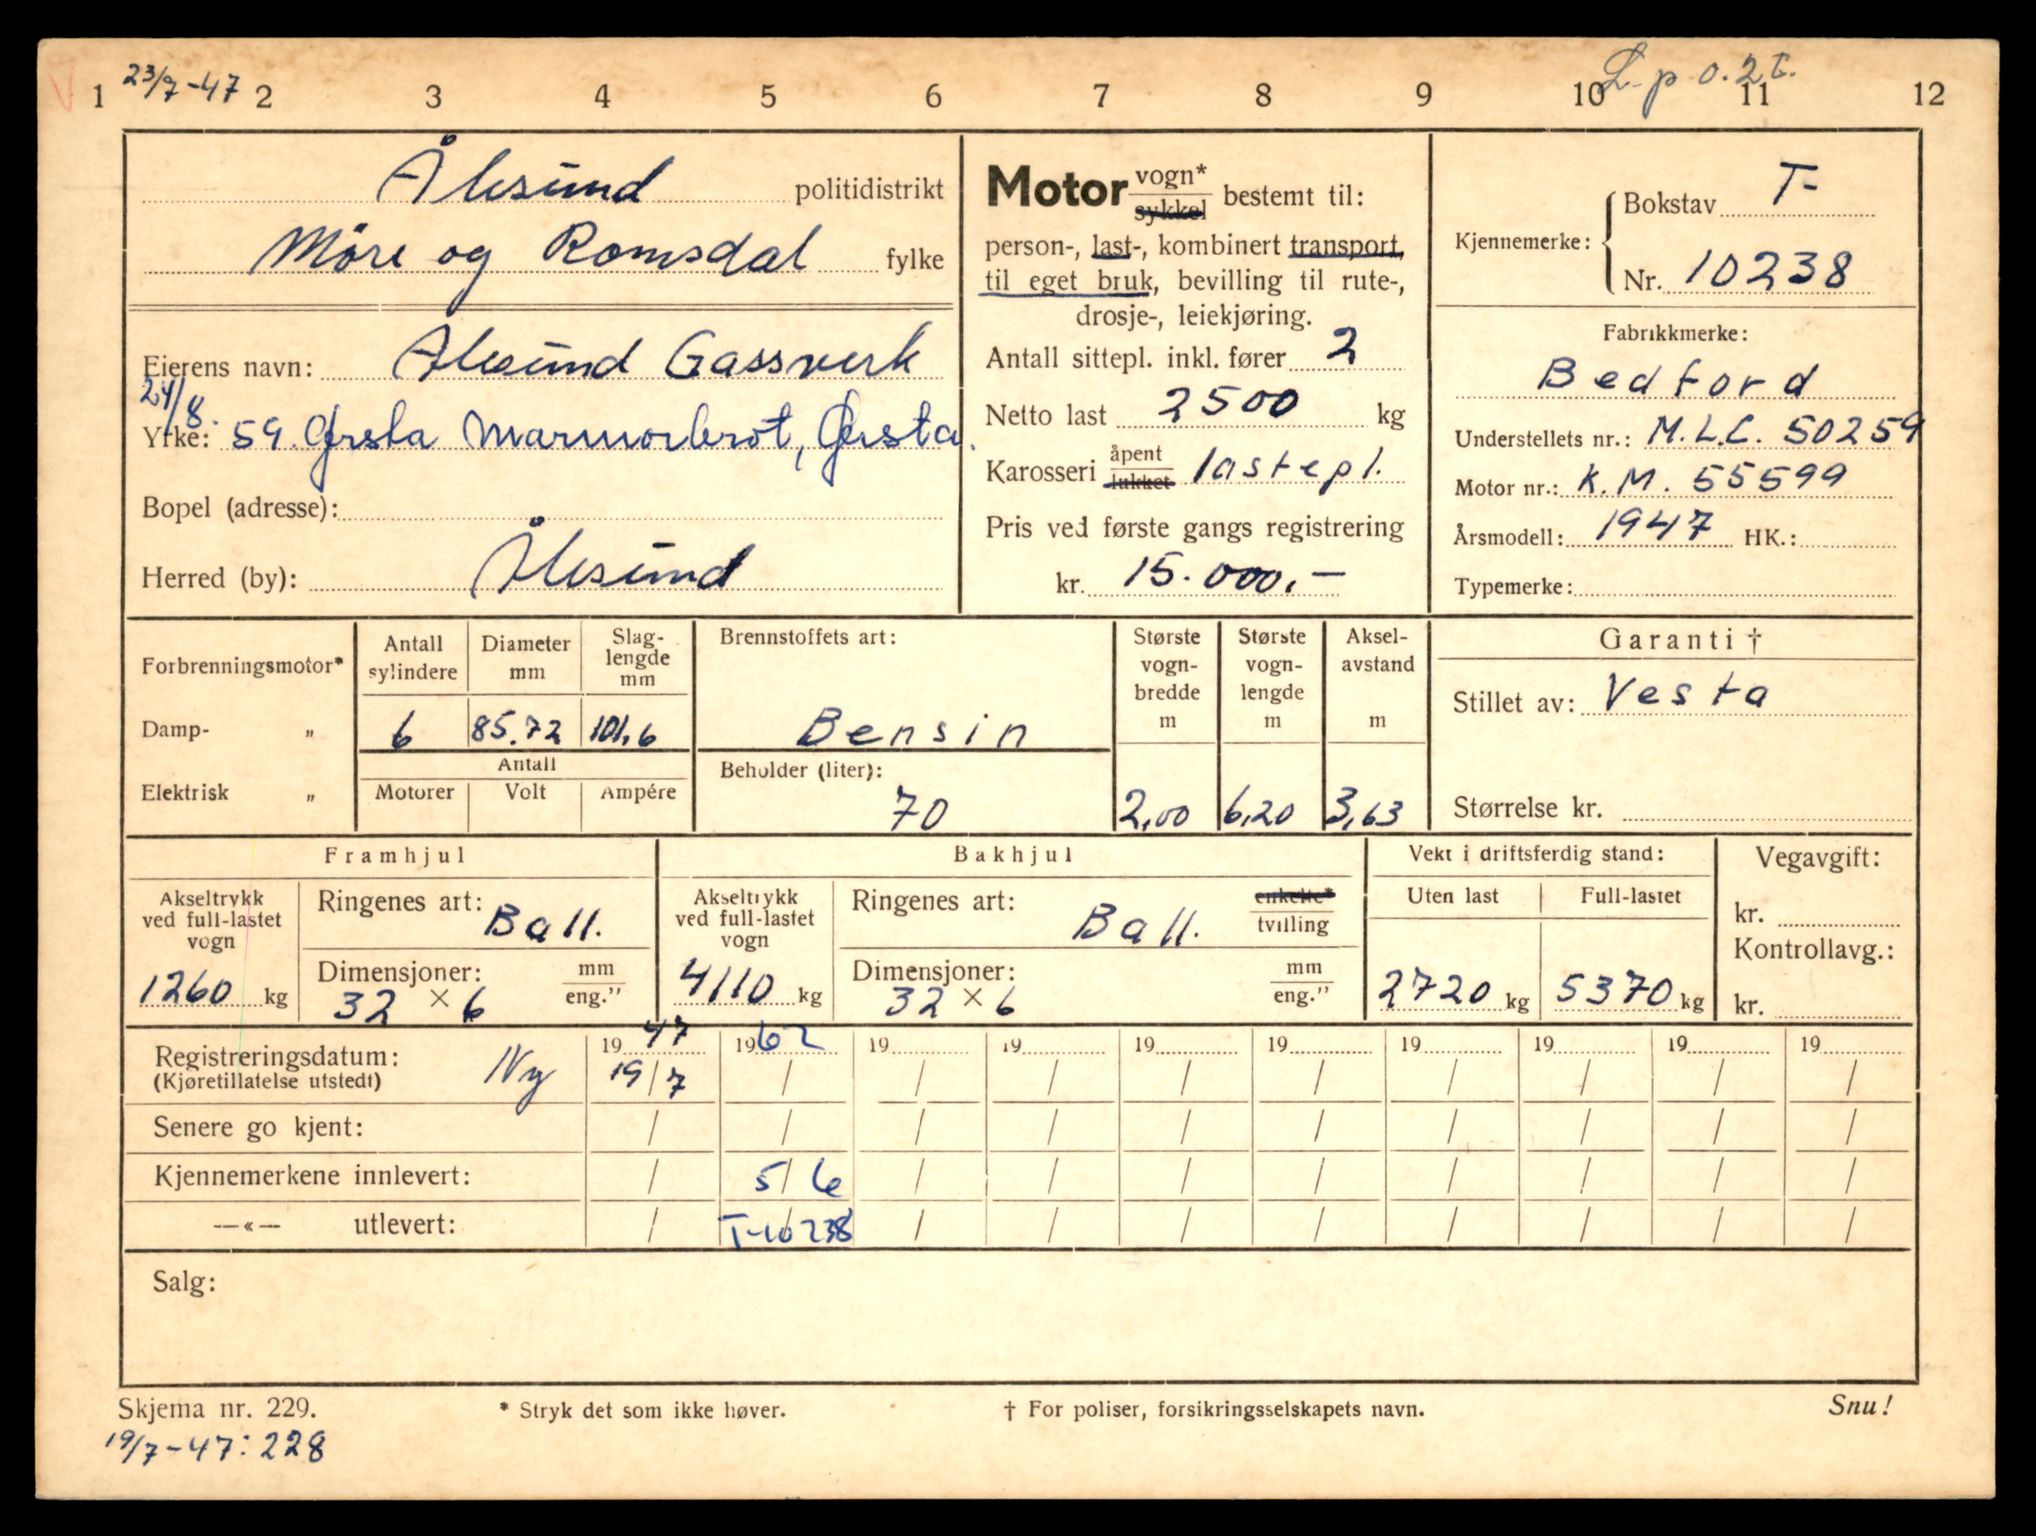 23/7-47
L. p o. 2 t.
1 2 3 4 5 6 7 8 9 10 11 12
Ålesund politidistrikt
Möre og Romsdal fylke
Eierens navn: Ålesund Gassverk
24/8.
Yrke: 59. Ørsta Marmorbrot, Ørsta.
Bopel (adresse):
Herred (by): Ålesund
Motor vogn* sykkel bestemt til:
person-, last-, kombinert transport,
til eget bruk, bevilling til rute-,
drosje-, leiekjøring.
Antall sittepl. inkl. fører 2
Netto last 2500 kg
Karosseri åpent lukket lastepl.
Pris ved første gangs registrering
kr. 15.000.-
Kjennemerke: Bokstav T-
Nr. 10238
Fabrikkmerke:
Bedford
Understellets nr.: M.L.C. 50259
Motor nr.: K.M. 55599
Årsmodell: 1947 HK.:
Typemerke:
Forbrenningsmotor*
Damp- „
Elektrisk „
Antall sylindere
Diameter mm
Slag-lengde mm
6 85.72 101,6
Antall
Motorer Volt Ampére
Brennstoffets art:
Bensin
Beholder (liter):
70
Største vogn-bredde m
2,00
Største vogn-lengde m
6,20
Aksel-avstand m
3,63
Garanti †
Stillet av: Vesta
Størrelse kr.
Framhjul
Akseltrykk ved full-lastet vogn
1260 kg
Ringenes art: Ball.
Dimensjoner: mm eng.”
32 × 6
Bakhjul
Akseltrykk ved full-lastet vogn
4110 kg
Ringenes art: Ball. enkelte* tvilling
Dimensjoner: mm eng.”
32 × 6
Vekt i driftsferdig stand:
Uten last Full-lastet
2720 kg 5370 kg
Vegavgift:
kr.
Kontrollavg.:
kr.
Registreringsdatum: Ny 1947 1962 19 19 19 19 19 19 19 19
(Kjøretillatelse utstedt) 19/7 / / / / / / / / /
Senere go kjent: / / / / / / / / / /
Kjennemerkene innlevert: / 5/6 / / / / / / / /
—«— utlevert: / T-10238 / / / / / / / /
Salg:
Skjema nr. 229.
* Stryk det som ikke høver.
† For poliser, forsikringsselskapets navn.
Snu!
19/7-47: 228